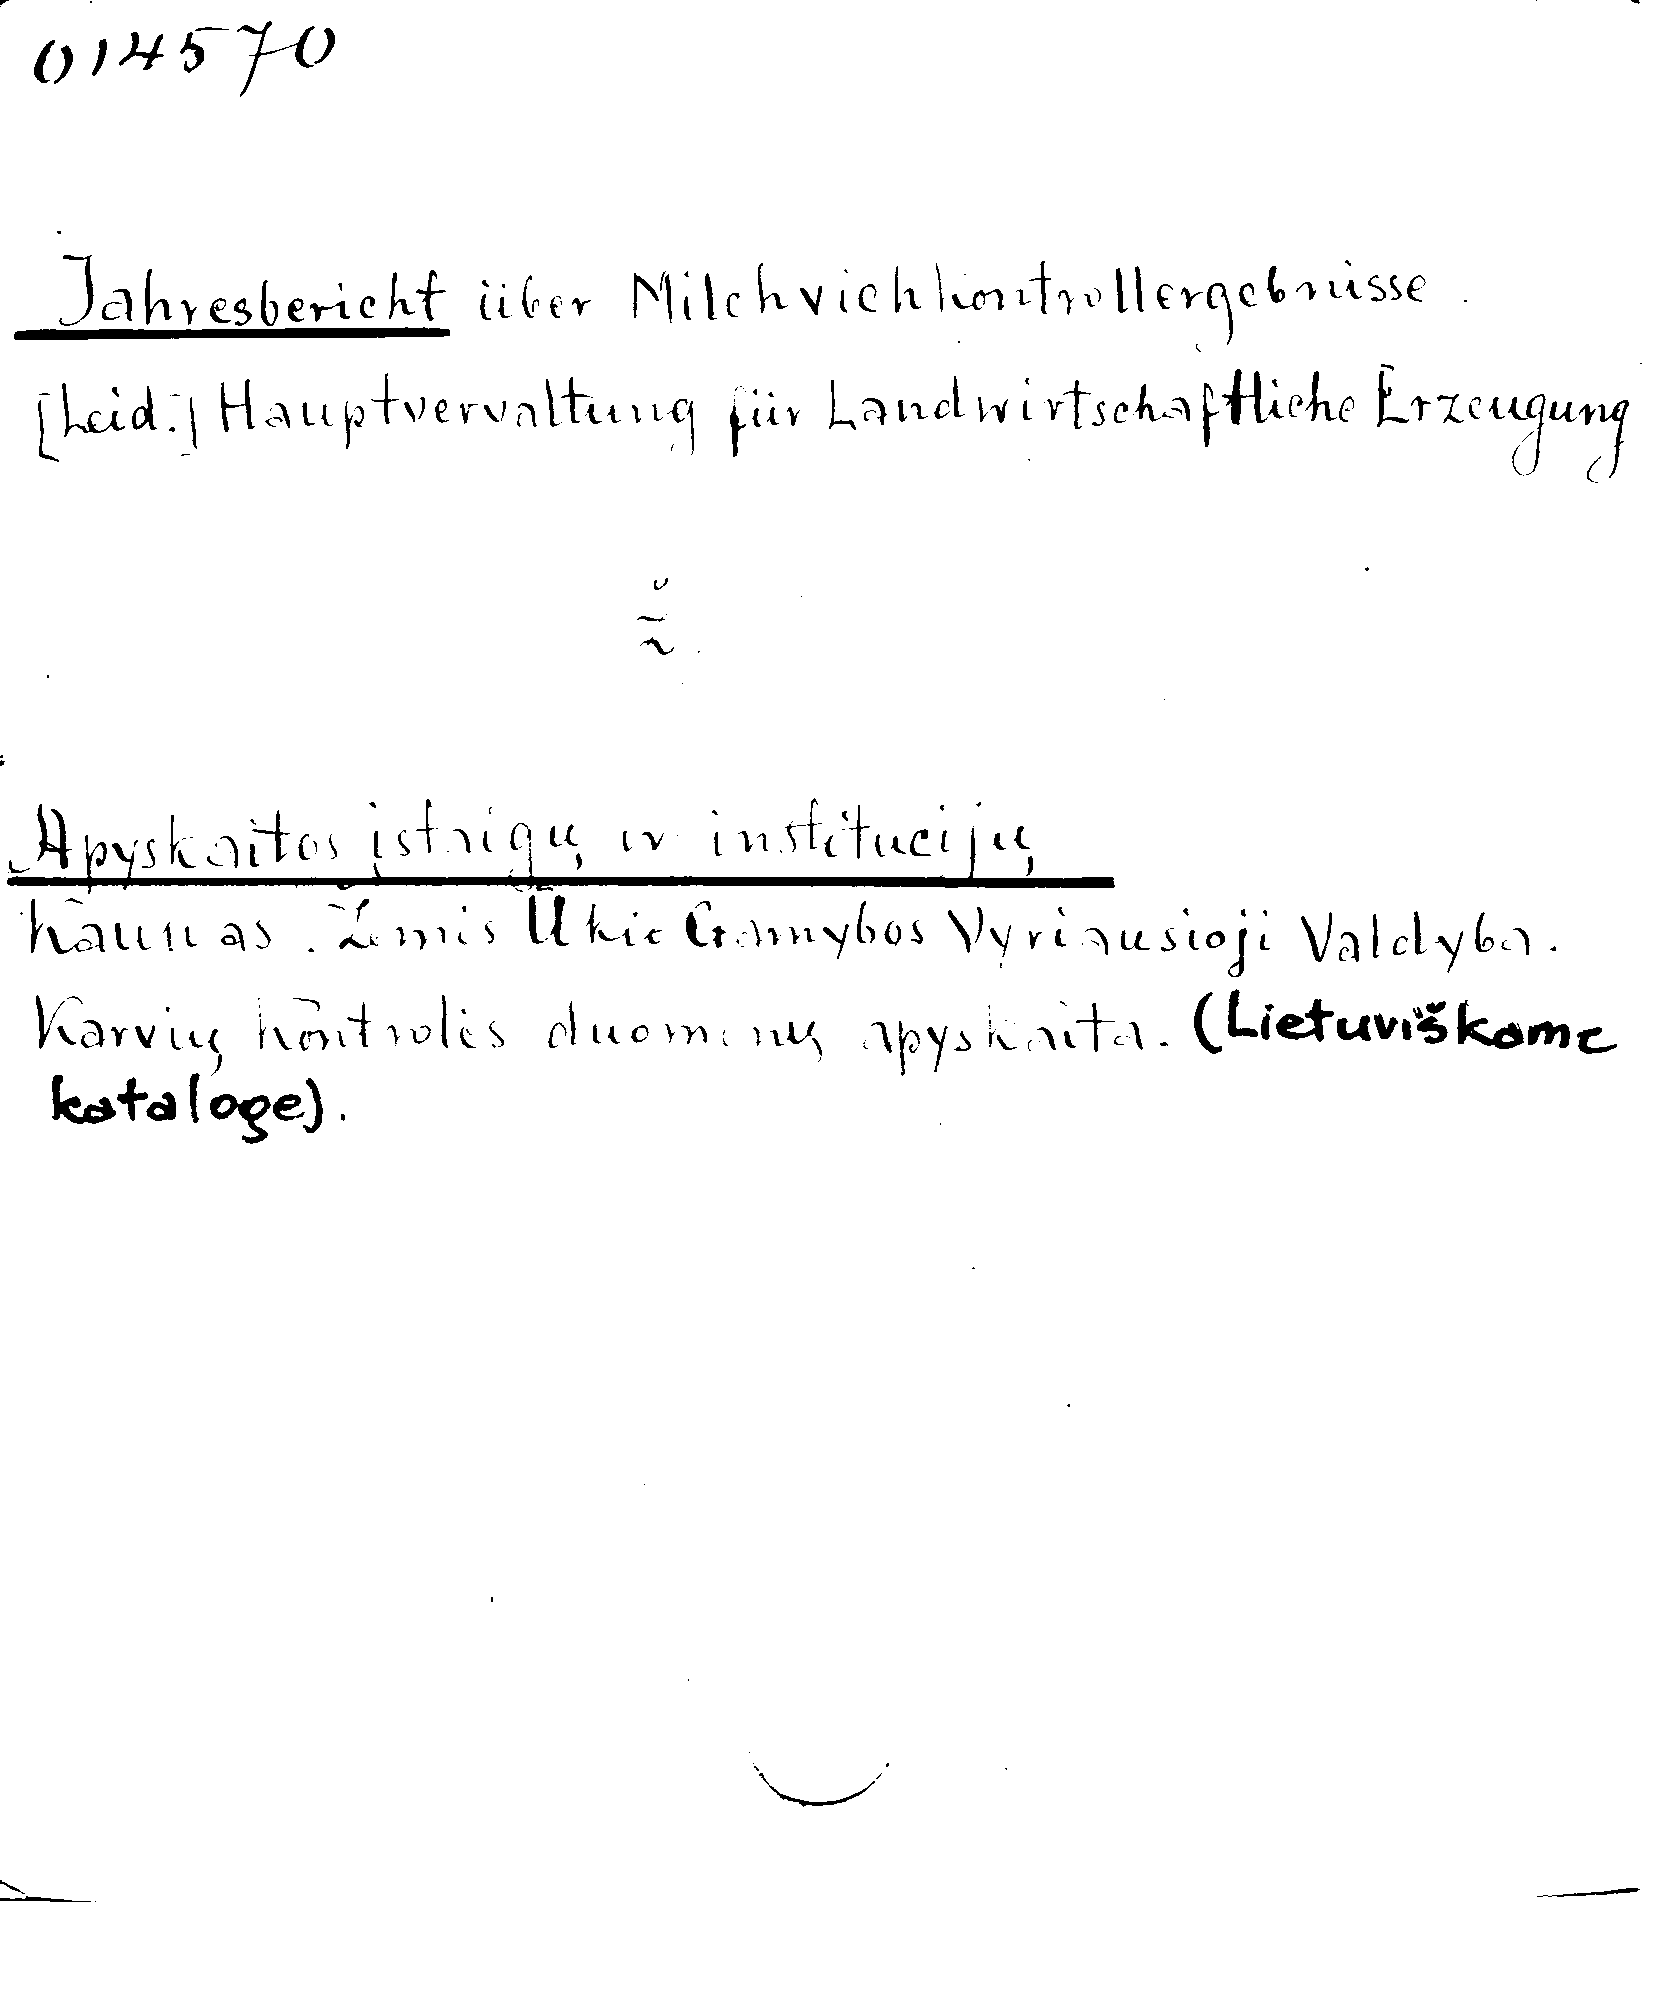 014570
Jahresbericht über Milchviehkontrollergebnisse.
[Leid.:] Hauptvervaltung für Landwirtschaftliche Erzeugung
ž.
Apyskaitos įstaigų ir institucijų
Kaunas. Žemės Ūkio Gamybos Vyriausioji Valdyba.
Karvių kontrolės duomenų apyskaita. (Lietuviškame
kataloge).